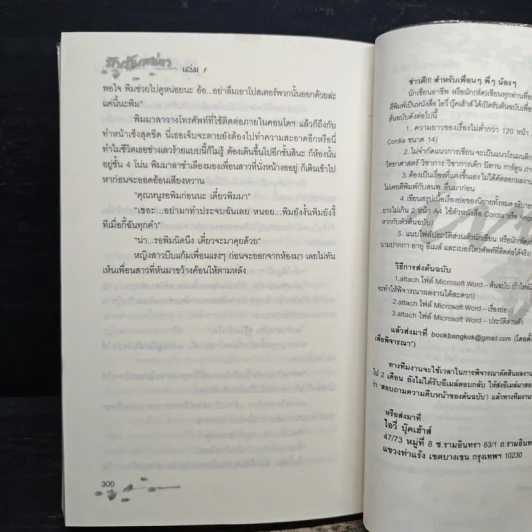 เล่ม 1
พอใจ พิมช่วยไปดูหน่อยนะ อ้อ...อย่าลืมเอาโปสเตอร์พวกนั้นออกด้วยล่ะ
แค่นี้นะพิม"
พิมมาลาวางโทรศัพท์ที่ใช้ติดต่อภายในคอนโดฯ แล้วก็ถึงกับ
ทำหน้าเซ็งสุดขีด นี่เธอเจ็บจะตายยังต้องไปทำความสะอาดอีกหรือนี่
ทำไมชีวิตเธออย่างเลวร้ายแบบนี้ก็ไม่รู้ ต้องเดินขึ้นไปอีกชั้นสินะ ก็ห้องนั้น
อยู่ชั้น 4 โน่น พิมมาลาชำเลืองมองเพื่อนสาวที่นั่งหน้างออยู่ ก็เดินเข้าไป
หาก่อนจะออดอ้อนเสียงหวาน
"คุณหนูรอพิมก่อนนะ เดี๋ยวพิมมา"
"เชอะ...อย่ามาทำประจบฉันเลย หนอย...พิมยังงั้นพิมยังงี้
ทีเมื่อกี้ฉันทุกคำ"
"น่า...รอพิมนิดนึง เดี๋ยวจะมาคุยด้วย"
หญิงสาวบีบแก้มเพื่อนแรงๆ ก่อนจะออกจากห้องมา เลยไม่ทัน
เห็นเพื่อนสาวที่หันมาขว้างค้อนให้ตามหลัง
300
ข่าวดี!!! สำหรับเพื่อนๆ พี่ๆ น้องๆ
นักเขียนอาชีพ หรือนัก(หัด)เขียนทุกท่านที่
ตีพิมพ์เป็นหนังสือ ไอวี่ บุ๊คเฮ้าส์ ได้เปิดรับต้นฉบับเพื่อ
ต้นฉบับดังต่อไปนี้
1. ความยาวของเรื่องไม่ต่ำกว่า 120 หน้า
Cordia ขนาด 14)
2. ไม่จำกัดแนวการเขียน จะเป็นแนวโรแมนติก
วิทยาศาสตร์ วิชาการ วิชาการเด็ก นิทาน การ์ตูน
3. ต้องเป็นเรื่องที่แต่งขึ้นเอง ไม่ได้คัดลอกผลงาน
ไม่เคยตีพิมพ์กับสนพ. อื่นมาก่อน
4. เขียนสรุปเนื้อเรื่องย่อของนิยายทั้งหมด
ยาวไม่เกิน 2 หน้า A4 ใช้ตัวหนังสือ Cordia หรือ
หากกับตัวต้นฉบับ)
5. แนบไฟล์ประวัติส่วนตัวนักเขียน หรือนัก(หัด)
นามปากกา อายุ อีเมล์ และเบอร์โทรศัพท์ที่ติดต่อได้จริง
วิธีการส่งต้นฉบับ
1.attach ไฟล์ Microsoft Word – ต้นฉบับ
จะทำให้พิจารณาผลงานได้สะดวก)
2.attach ไฟล์ Microsoft Word – เรื่องย่อ
3.attach ไฟล์ Microsoft Word – ประวัติส่วนตัว
แล้วส่งมาที่ bookbangkok@gmail.com
เพื่อพิจารณา")
ทางทีมงานจะใช้เวลาในการพิจารณาตัดสินผลงาน
ไป 2 เดือน ยังไม่ได้รับอีเมล์ตอบกลับ ให้ส่งอีเมล์มาสอบ
ว่า 'สอบถามความคืบหน้าของต้นฉบับ' แล้วทางทีมงาน
หรือส่งมาที่
ไอวี่ บุ๊คเฮ้าส์
47/73 หมู่ที่ 8 ซ.รามอินทรา 63/1 ถ.รามอินทรา
แขวงท่าแร้ง เขตบางเขน กรุงเทพฯ 10230